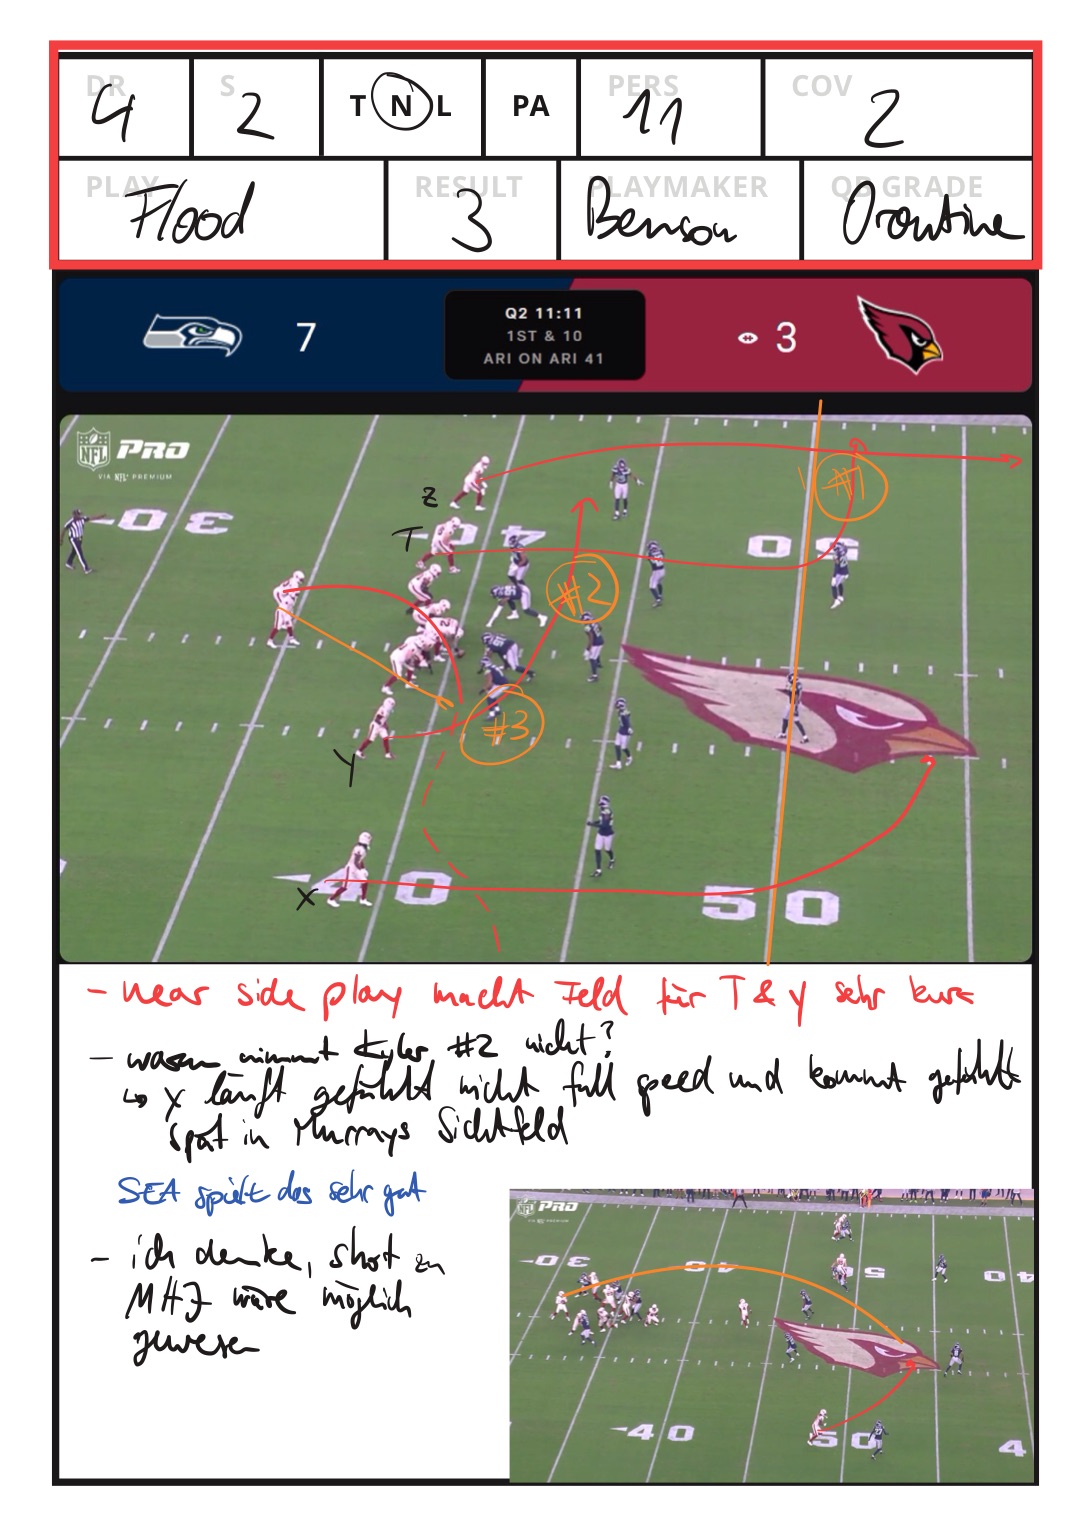 DR S T N L PA PERS COV
4 2 11 2
PLAY RESULT PLAYMAKER QB GRADE
Flood 3 Benson 0 routine
7 Q2 11:11 3
1ST & 10
ARI ON ARI 41
NFL PRO
VIA NFL+ PREMIUM
Z
T
30 40 50
#1
#2
#3
Y
X
40 50
- near side play macht Feld für T & Y sehr kurz
- warum nimmt Kyler #2 nicht?
↳ X läuft gefühlt nicht full speed und kommt gefühlt
spät in Murrays Sichtfeld
SEA spielt das sehr gut
- ich denke, shot zu
MHJ wäre möglich
gewesen
NFL PRO
30 40 5 40
40 50 4